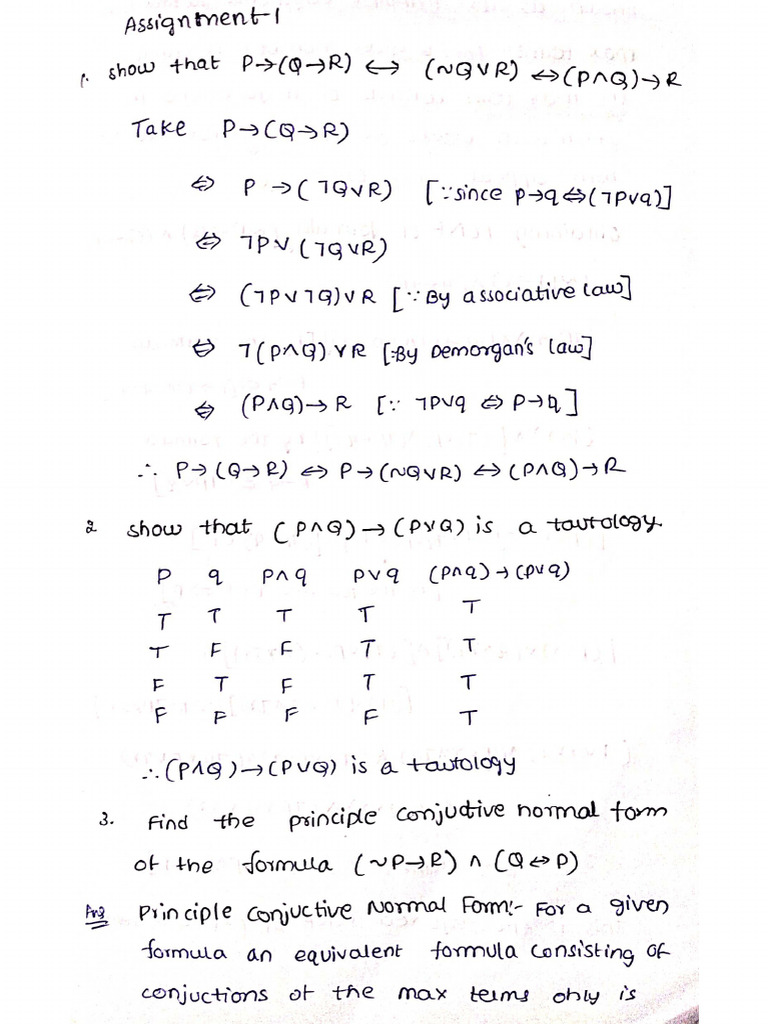 Assignment-1
1. show that P→(Q→R) ↔ (~Q∨R) ⇔(P∧Q)→R
Take P→(Q→R)
⇔ P →(¬Q∨R) [∵since P→q⇔(¬P∨q)]
⇔ ¬P∨(¬Q∨R)
⇔ (¬P∨¬Q)∨R [∵By associative law]
⇔ ¬(P∧Q)∨R [∵By Demorgan's law]
⇔ (P∧Q)→R [∵ ¬P∨q ⇔ P→q]
∴ P→(Q→R) ⇔ P→(~Q∨R) ⇔(P∧Q)→R
2 show that (P∧Q)→(P∨Q) is a tautology
P q P∧q P∨q (P∧q)→(P∨q)
T T T T T
T F F T T
F T F T T
F F F F T
∴(P∧Q)→(P∪Q) is a tautology
3. Find the principle conjuctive normal form
of the formula (~P→R) ∧ (Q⇔P)
Ans Principle conjuctive Normal Form:- For a given
formula an equivalent formula consisting of
conjuctions of the max terms only is